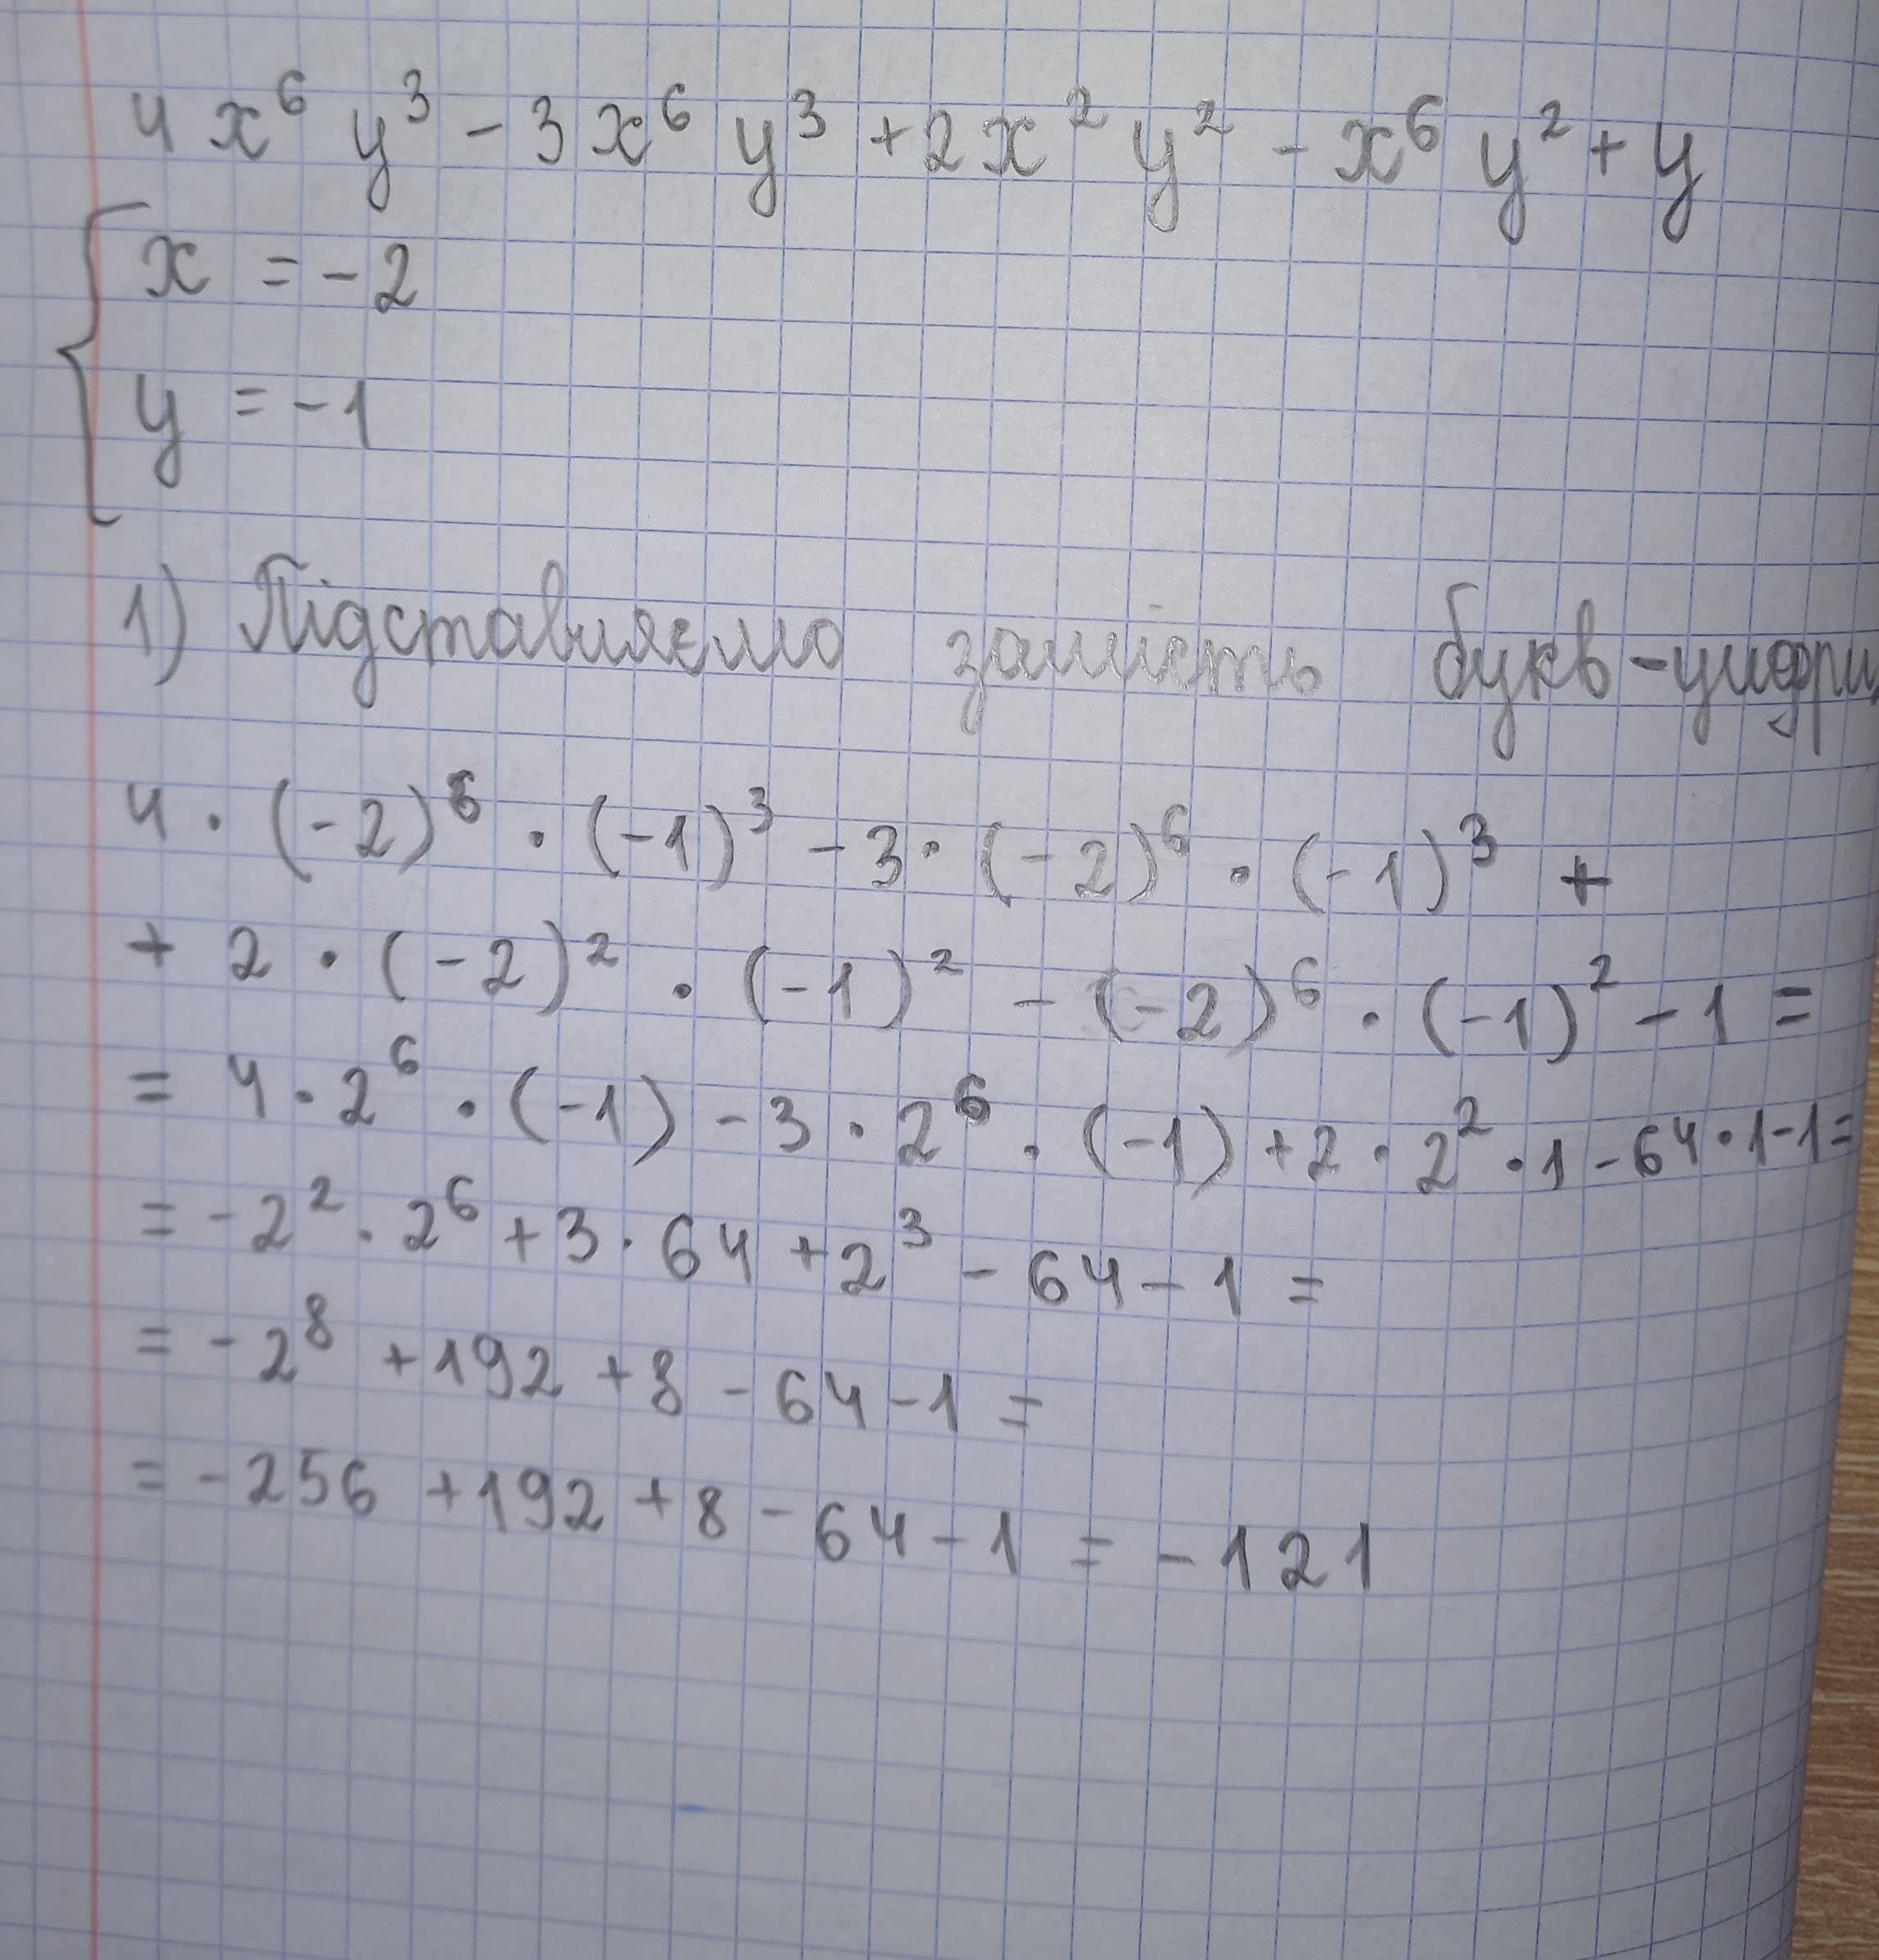 4x⁶y³ - 3x⁶y³ + 2x²y² - x⁶y² + y
{ x = -2
y = -1
1) Підставляємо замість букв - цифри
4 · (-2)⁶ · (-1)³ - 3 · (-2)⁶ · (-1)³ +
+ 2 · (-2)² · (-1)² - (-2)⁶ · (-1)² - 1 =
= 4 · 2⁶ · (-1) - 3 · 2⁶ · (-1) + 2 · 2² · 1 - 64 · 1 - 1 =
= -2² · 2⁶ + 3 · 64 + 2³ - 64 - 1 =
= -2⁸ + 192 + 8 - 64 - 1 =
= -256 + 192 + 8 - 64 - 1 = -121